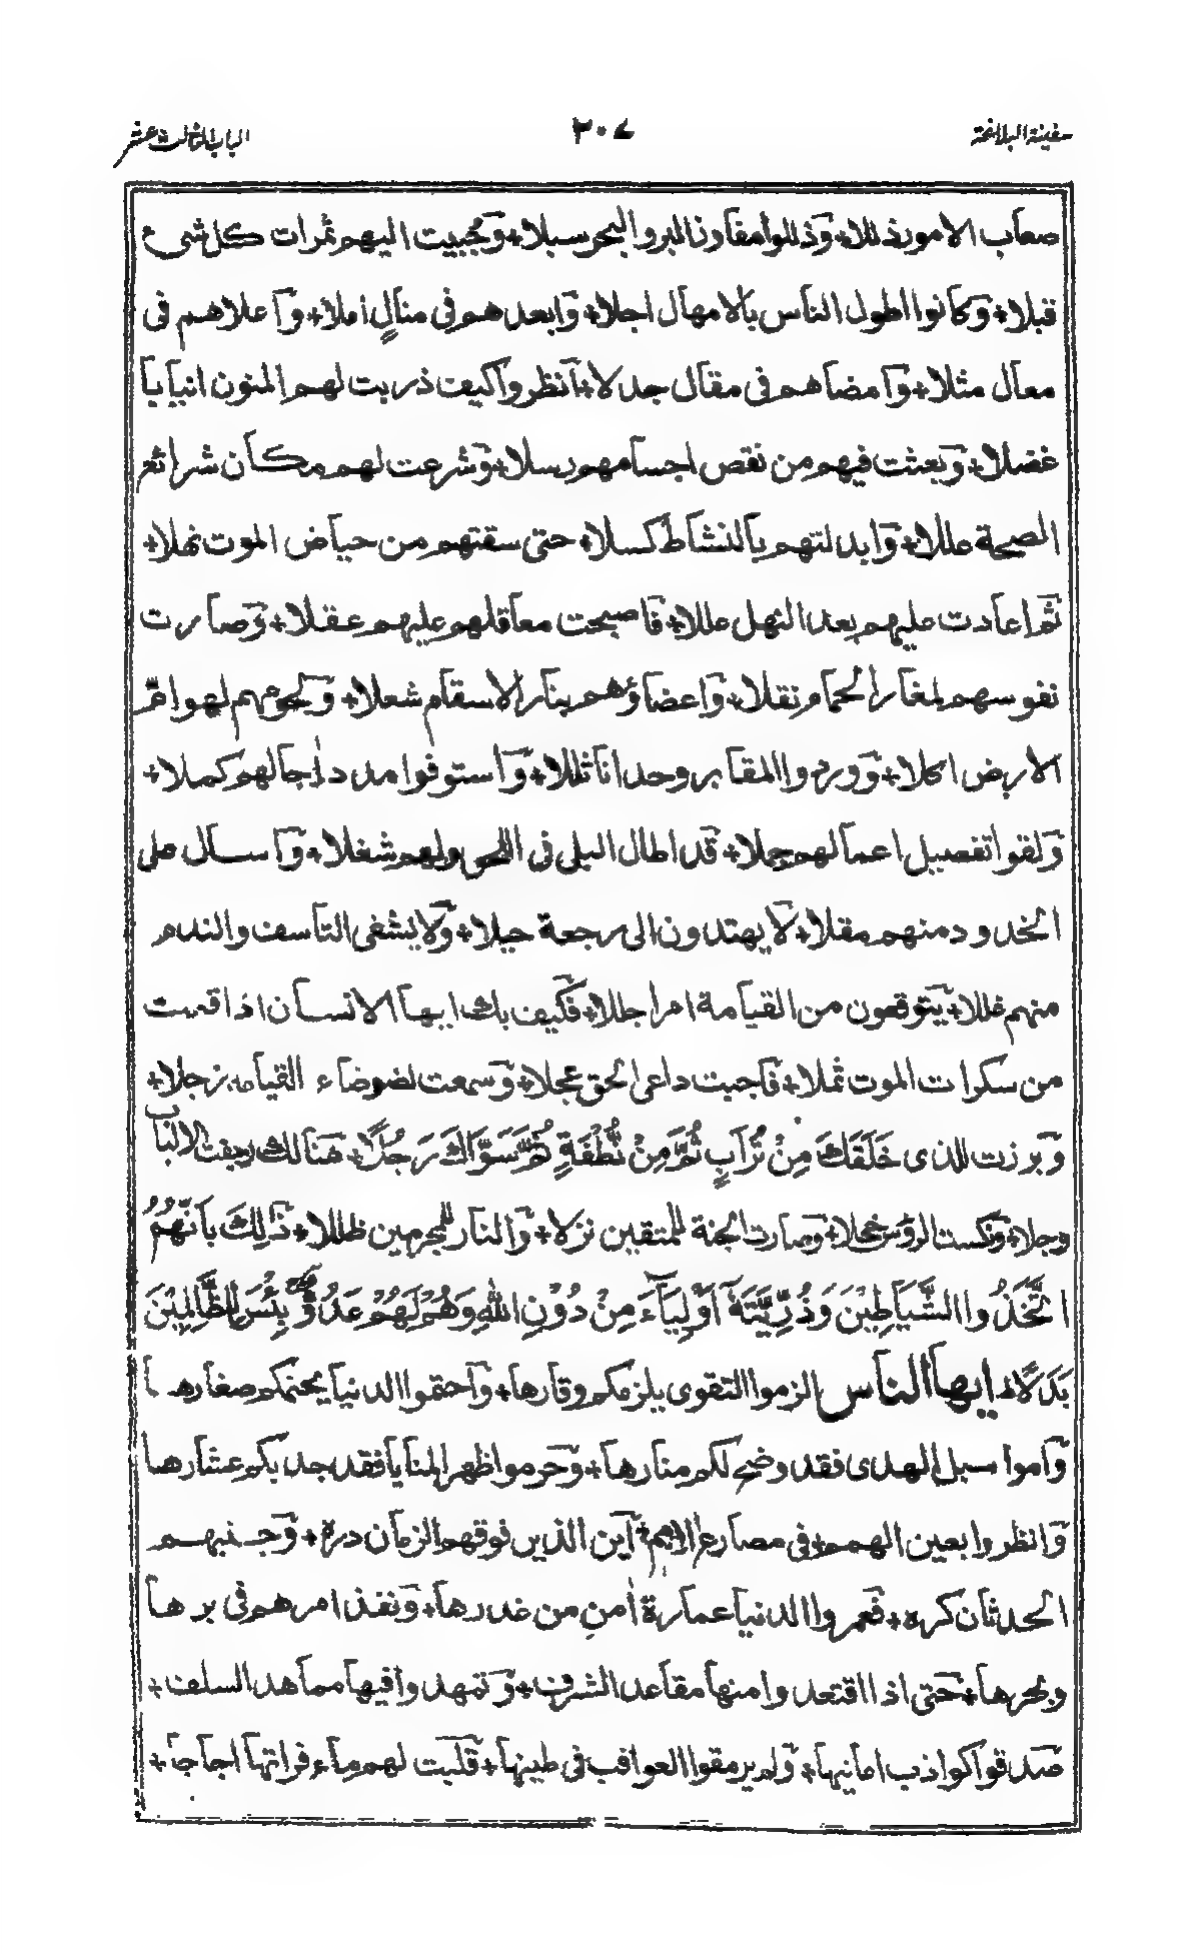 سفينة البلاغة ٣٠٧ الباب الثالث عشر
صعاب الامور ذللا + وذللوا مفاوز البر والبحر سبلا + وجبيت اليهم ثمرات كل شئ
قبلا + وكانوا اطول الناس بالامهال اجلا + وابعدهم فى منال املا + واعلاهم فى
معال مثلا + وامضاهم فى مقال جدلا + انظروا كيف ذربت لهم المنون انيابا
عضلا + وبعثت فيهم من نقص اجسامهم رسلا + وشرعت لهم مكان شرائع
الصحة عللا + وابدلتهم بالنشاط كسلا + حتى سقتهم من حياض الموت نهلا +
ثم اعادت عليهم بعد النهل عللا + فاصبحت معاقلهم عليهم عقلا + وصارت
نفوسهم لمغار الحمام نقلا + واعضاؤهم بنار الاسقام شعلا + ولحومهم لهوام
الارض اكلا + ووردوا المقابر وحدانا ثللا + واستوفوا مدد اٰجالهم كملا +
ولقوا تفصيل اعمالهم جملا + قد اطال البلى فى اللحود لهم شغلا + واسال على
الخدود منهم مقلا + لا يهتدون الى رجعة حيلا + ولا يشفى التاسف والندم
منهم غللا + يتوقعون من القيامة امرا جللا + فكيف بك ايها الانسان اذا قمت
من سكرات الموت ثملا + فاجبت داعى الحق عجلا + وسمعت لضوضاء القيامة زجلا +
وبرزت للذى خَلَقَكَ مِنْ تُرَابٍ ثُمَّ مِنْ نُطْفَةٍ ثُمَّ سَوَّاكَ رَجُلًا + هنالك رجفت الالباب
وجلا + ونكست الرؤس خجلا + وصارت الجنة للمتقين نزلا + والنار للمجرمين ظللا + ذٰلِكَ بِاَنَّهُمُ
اتَّخَذُوا الشَّيَاطِيْنَ وَذُرِّيَّتَهٗ اَوْلِيَآءَ مِنْ دُوْنِ اللهِ وَهُمْ لَهُمْ عَدُوٌّ بِئْسَ لِلظَّالِمِيْنَ
بَدَلًا + ايها الناس الزموا التقوى يلزمكم وقارها + واحتموا الدنيا يجنبكم صغارها
واموا سبل الهدى فقد وضح لكم منارها + وحرموا ظهر المنايا فقد جد بكم عشارها
وانظروا بعين الهمم + فى مصارع الامم + اين الذين فوقهم الزمان دره + وجنبهم
الحدثان كره + فعمروا الدنيا عمارة اٰمن من غدرها + ونفذ امرهم فى برها
وبحرها + حتى اذا اقتعدوا منها مقاعد الشرف + وتمهدوا فيها مماهد السلف +
صدقوا كواذب امانيها + ولم يرمقوا العواقب فى طيها + قلبت لهم ماء فراتها اجاجا +